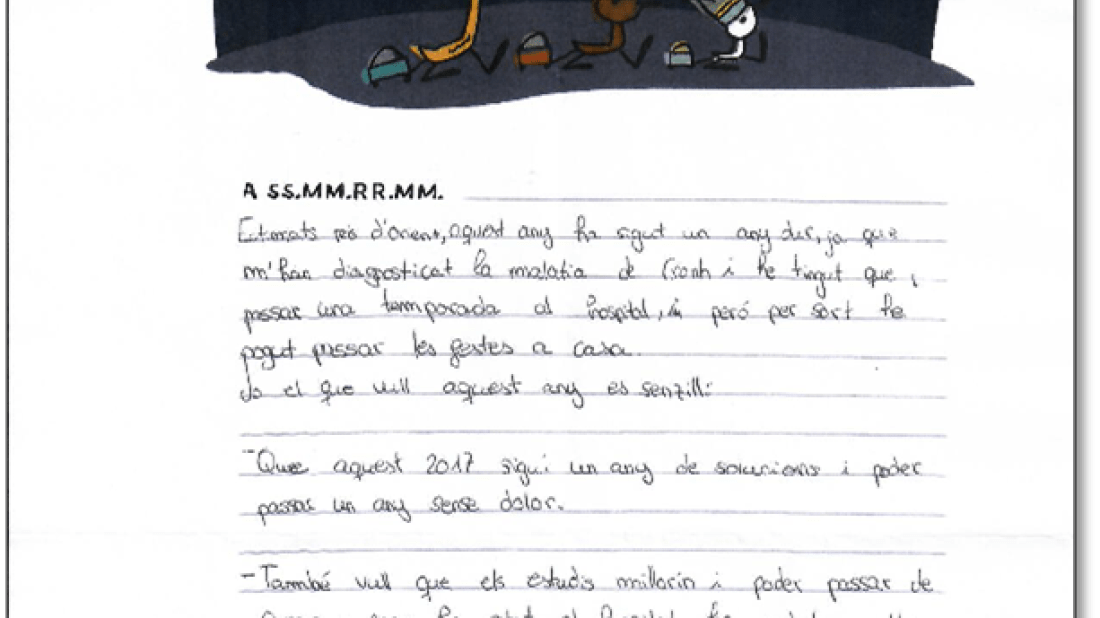 A SS.MM.RR.MM.
Estimats reis d'Orient, aquest any ha sigut un any dur, ja que
m'han diagnosticat la malatia de Cronh i he tingut que
passar una temporada al hospital, però per sort he
pogut passar les festes a casa.
Jo el que vull aquest any es senzill:
-Que aquest 2017 sigui un any de solucions i poder
passar un any sense dolor.
-També vull que els estudis millorin i poder passar de